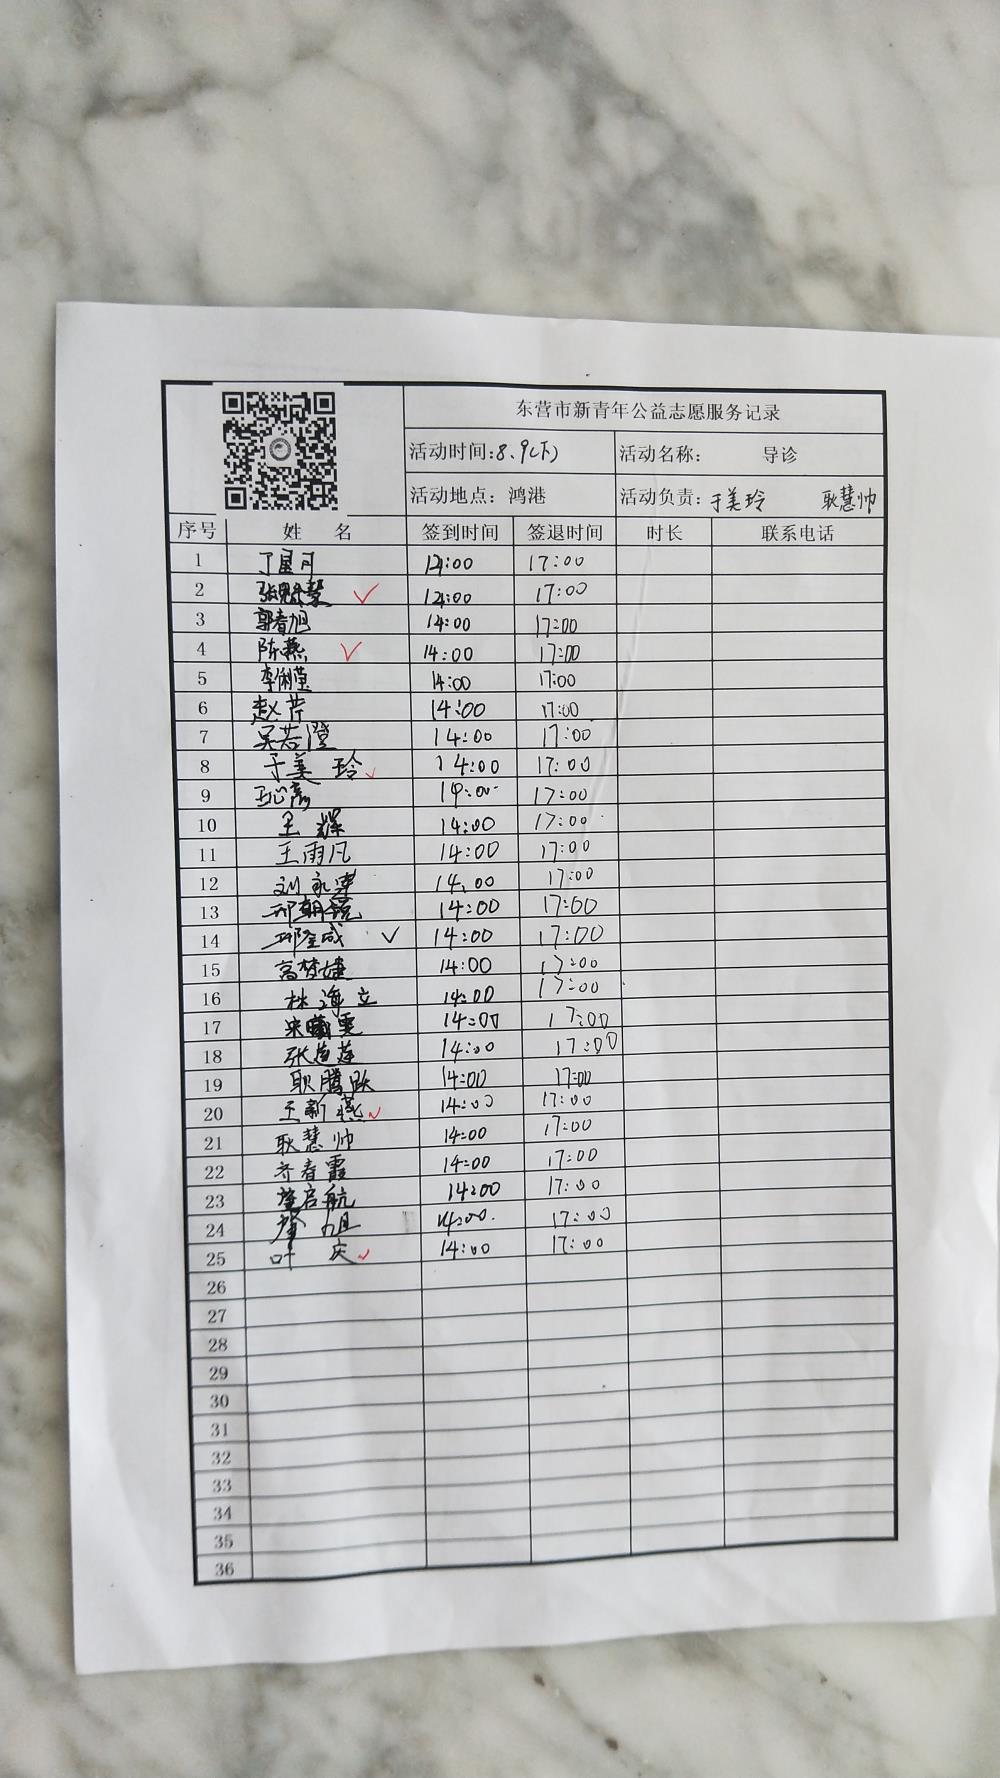 东营市新青年公益志愿服务记录
活动时间:8.9(下) 活动名称: 导诊
活动地点: 鸿港 活动负责: 于美玲 耿慧帅
序号 姓 名 签到时间 签退时间 时长 联系电话
1 丁星月 14:00 17:00
2 14:00 17:00
3 郭春旭 14:00 17:00
4 陈燕 ✓ 14:00 17:00
5 李俐莹 14:00 17:00
6 赵芹 14:00 17:00
7 吴若澄 14:00 17:00
8 于美玲 ✓ 14:00 17:00
9 14:00 17:00
10 王辉 14:00 17:00
11 王雨凡 14:00 17:00
12 刘永军 14:00 17:00
13 邢朝锐 14:00 17:00
14 邢金成 ✓ 14:00 17:00
15 高梦婕 14:00 17:00
16 林海立 14:00 17:00
17 14:00 17:00
18 14:00 17:00
19 耿腾跃 14:00 17:00
20 王新燕 ✓ 14:00 17:00
21 耿慧帅 14:00 17:00
22 齐春霞 14:00 17:00
23 启航 14:00 17:00
24 旭 14:00 17:00
25 叶庆 ✓ 14:00 17:00
26
27
28
29
30
31
32
33
34
35
36